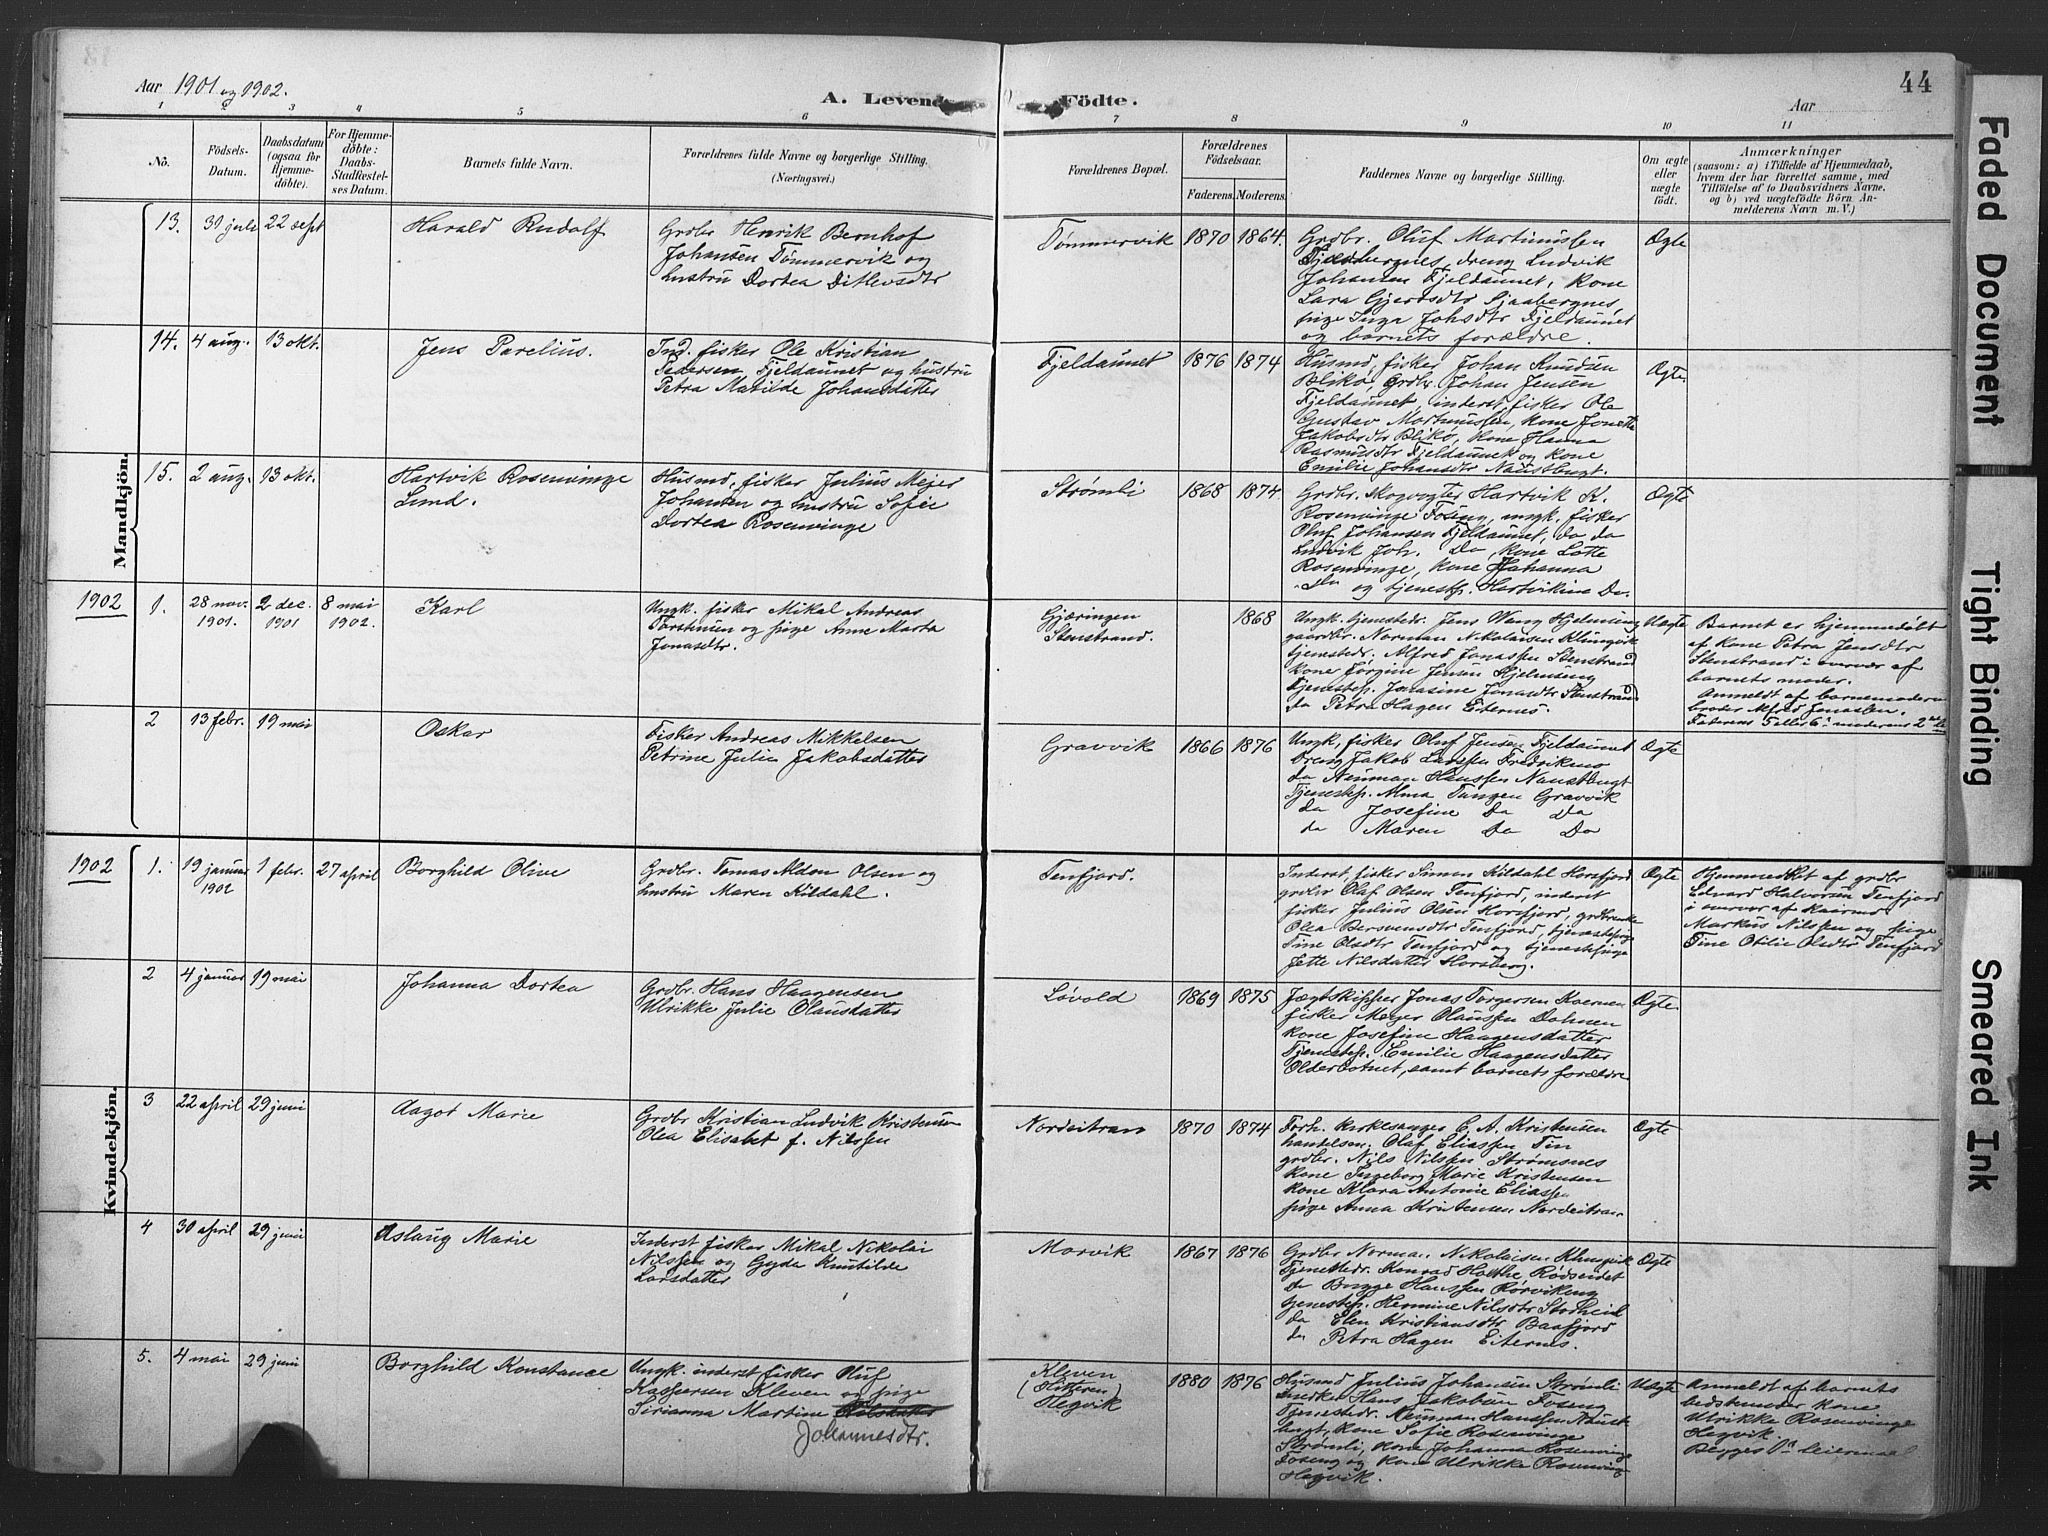 Aar 1901 og 1902.
A. Levende Födte.
Aar
44
1 2 3 4 5 6 7 8 9 10 11
No.
Födsels-Datum.
Daabsdatum (ogsaa for Hjemme-döbte).
For Hjemme-döbte: Daabs-Stadfæstel-ses Datum.
Barnets fulde Navn.
Forældrenes fulde Navne og borgerlige Stilling.
(Næringsvei.)
Forældrenes Bopæl.
Forældrenes Födselsaar.
Faderens.
Moderens.
Faddernes Navne og borgerlige Stilling.
Om ægte eller uægte födt.
Anmærkninger
(saasom: a) i Tilfælde af Hjemmedaab,
hvem der har forrettet samme, med
Tilföielse af to Daabsvidners Navne,
og b) ved uægtefödte Börn An-
melderens Navn m. V.)
Mandkjön.
13. 30 juli 22 sept
Harald Rudolf
Grdbr Henrik Bernhof
Johansen Tømmervik og
hustru Dortea Ditlevsdtr
Tømmervik 1870 1864.
Grdbr. Oluf Martinussen
Fjeldbergnes, dreng Ludvik
Johansen Fjeldaunet, kone
Lara Gjertsdtr Gjaabergnes,
pige Inga Johsdtr Fjeldaunet
og barnets forældre.
Ægte
14. 4 aug. 13 okt.
Jens Parelius.
Ind. fisker Ole Kristian
Pedersen Fjeldaunet og hustru
Petra Matilde Johansdatter
Fjeldaunet 1876 1874
Husmd, fisker Johan Knudsen
Blikø, Grdbr. Johan Jensen
Fjeldaunet, inderst, fisker Ole
Gustav Martinussen, kone Jonetta
Jakobsdtr Blikø, kone Hanna
Rasmusdtr Fjeldaunet og kone
Emilie Johansdtr Naustbugt.
Ægte
15. 2 aug. 13 okt.
Hartvik Rosenvinge
Lund.
Husmd, fisker Julius Mejer
Johansen og hustru Sofie
Dortea Rosenvinge
Strømli 1868 1874.
Grdbr. Skogvogter Hartvik K.
Rosenvinge Foseng, ungk. fisker
Oluf Johansen Fjeldaunet, da da
Ludvik Joh. Do, kone Lotte
Rosenvinge, kone Johanna
Do og tjenestp. Hartvikine Do.
Ægte
1902
1. 28 nov. 1901. 2 dec. 1901 8 mai 1902.
Karl
Ungk. fisker Mikal Andreas
Torstensen og pige Anne Marta
Jonasdtr.
Gjæringen
Stenstrand.
1868
Ungk. tjenestedr. Jens Wang Hjelmseng
gaardbr. Norman Nikolaisen Klungvik
tjenestedr. Alfred Jonassen Stenstrand
kone Jørgine Jensen Hjelmseng
Tjenestep. Jonasine Jonasdtr Stenstrand
da Petra Hagen Eiternes.
Uægte
Barnet er hjemmedøbt
af kone Petra Jensdtr
Stenstrand i overvær af
barnets moder.
Anmeldt af barnemoderens
broder Alfred Jonassen.
Faderens 5 eller 6, moderens 2
2 13 febr. 19 mai
Oskar
Fisker Andreas Mikkelsen
Petrine Julie Jakobsdatter
Gravvik 1866 1876
Ungk, fisker Oluf Jensen Fjeldaunet
Dreng Jakob Larssen Fredviknes
da Neuman Hanssen Naustbugt
Tjenestep. Alma Tangen Gravvik
da Josefine Da Da
da Maren Da Da
Ægte
Kvindekjön.
1902
1. 19 januar 1902 1 febr. 27 april
Borghild Olive
Grdbr. Tomas Aldon Olsen og
hustru Maren Kildahl.
Tenfjord.
Inderst, fisker Simen Kildahl Horsfjord
grdbr Olaf Olsen Tenfjord, inderst
fisker Julius Olsen Horsfjord, grdbrenke
Olea Bersvensdtr Tenfjord, tjenestepige
Tine Olsdtr Tenfjord og tjenestepige
Jette Nilsdatter Horsberg.
Ægte
Hjemmedøbt af grdbr
Edvard Halvorsen Tenfjord
i overvær af
Markus Nilssen og pige
Tine Otilie Olsdtr Tenfjord
2 4 januar 19 mai
Johanna Dortea
Grdbr. Hans Haagensen
Ulrikke Julie Olausdatter
Løvold 1869 1875
Jægtskipper Jonas Torgersen Kvernen
fisker Mejer Olaussen Dalmen
kone Josefine Haagensdatter
Tjenestep. Emilie Haagensdatter
Olderbotnet, samt barnets forældre
Ægte
3 22 april 29 juni
Aagot Marie
Grdbr Kristian Ludvik Kristensen
Olea Elisabet f. Nilssen
Nordeitran 1870 1874
Forh. kirkesanger C. A. Kristensen
handelsm. Olaf Eliassen Tin
grdbr. Nils Nilssen Strømsnes
kone Ingeborg Marie Kristensen
kone Klara Antonie Eliassen
pige Anna Kristensen Nordeitran.
Ægte
4 30 april 29 juni
Aslaug Marie
Inderst fisker Mikal Nikolai
Nilssen og Gyda Knutilde
Larsdatter
Marvik 1867 1876
Grdbr Norman Nikolaisen Klungvik
Tjenestedr. Konrad Holthe Rødseidet
da Brygge Hanssen Rørvikeng
tjenestep. Hermine Nilsdtr Storheid
da Elen Kristiansdtr Baafjord
da Petra Hagen Eiternes.
Ægte
5. 4 mai 29 juni
Borghild Konstance
Ungk. inderst fisker Oluf
Kaspersen Kleven og pige
Sirianna Martine
Johannesdtr.
Kleven
(Hitteren)
Hegvik
1880 1876
Husmd Julius Johansen Strømli
snedker Hans Jakobsen Foseng
Tjenestedr. Neuman Hanssen Naust-
bugt, kone Sofie Rosenvinge
Strømli, kone Johanna Rosenvinge
Foseng og kone Ulrikke Rosenvinge
Hegvik.
Uægte
Anmeldt af barnets
bedstemoder kone
Ulrikke Rosenvinge
Hegvik.
Begges 1ste leiermaal
Faded Document
Tight Binding
Smeared Ink